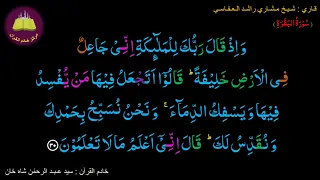 قاری : شیخ مشاری راشد العفاسی
(سُوْرَةُ الْبَقَرَةِ)
وَاِذْ قَالَ رَبُّكَ لِلْمَلٰٓئِكَةِ اِنِّىْ جَاعِلٌ
فِى الْاَرْضِ خَلِيْفَةً ؕ قَالُوْٓا اَتَجْعَلُ فِيْهَا مَنْ يُّفْسِدُ
فِيْهَا وَيَسْفِكُ الدِّمَآءَ ۚ وَنَحْنُ نُسَبِّحُ بِحَمْدِكَ
وَنُقَدِّسُ لَكَ ؕ قَالَ اِنِّىْٓ اَعْلَمُ مَا لَا تَعْلَمُوْنَ ۳۰
خادم القرآن : سید عبد الرحمٰن شاہ خان